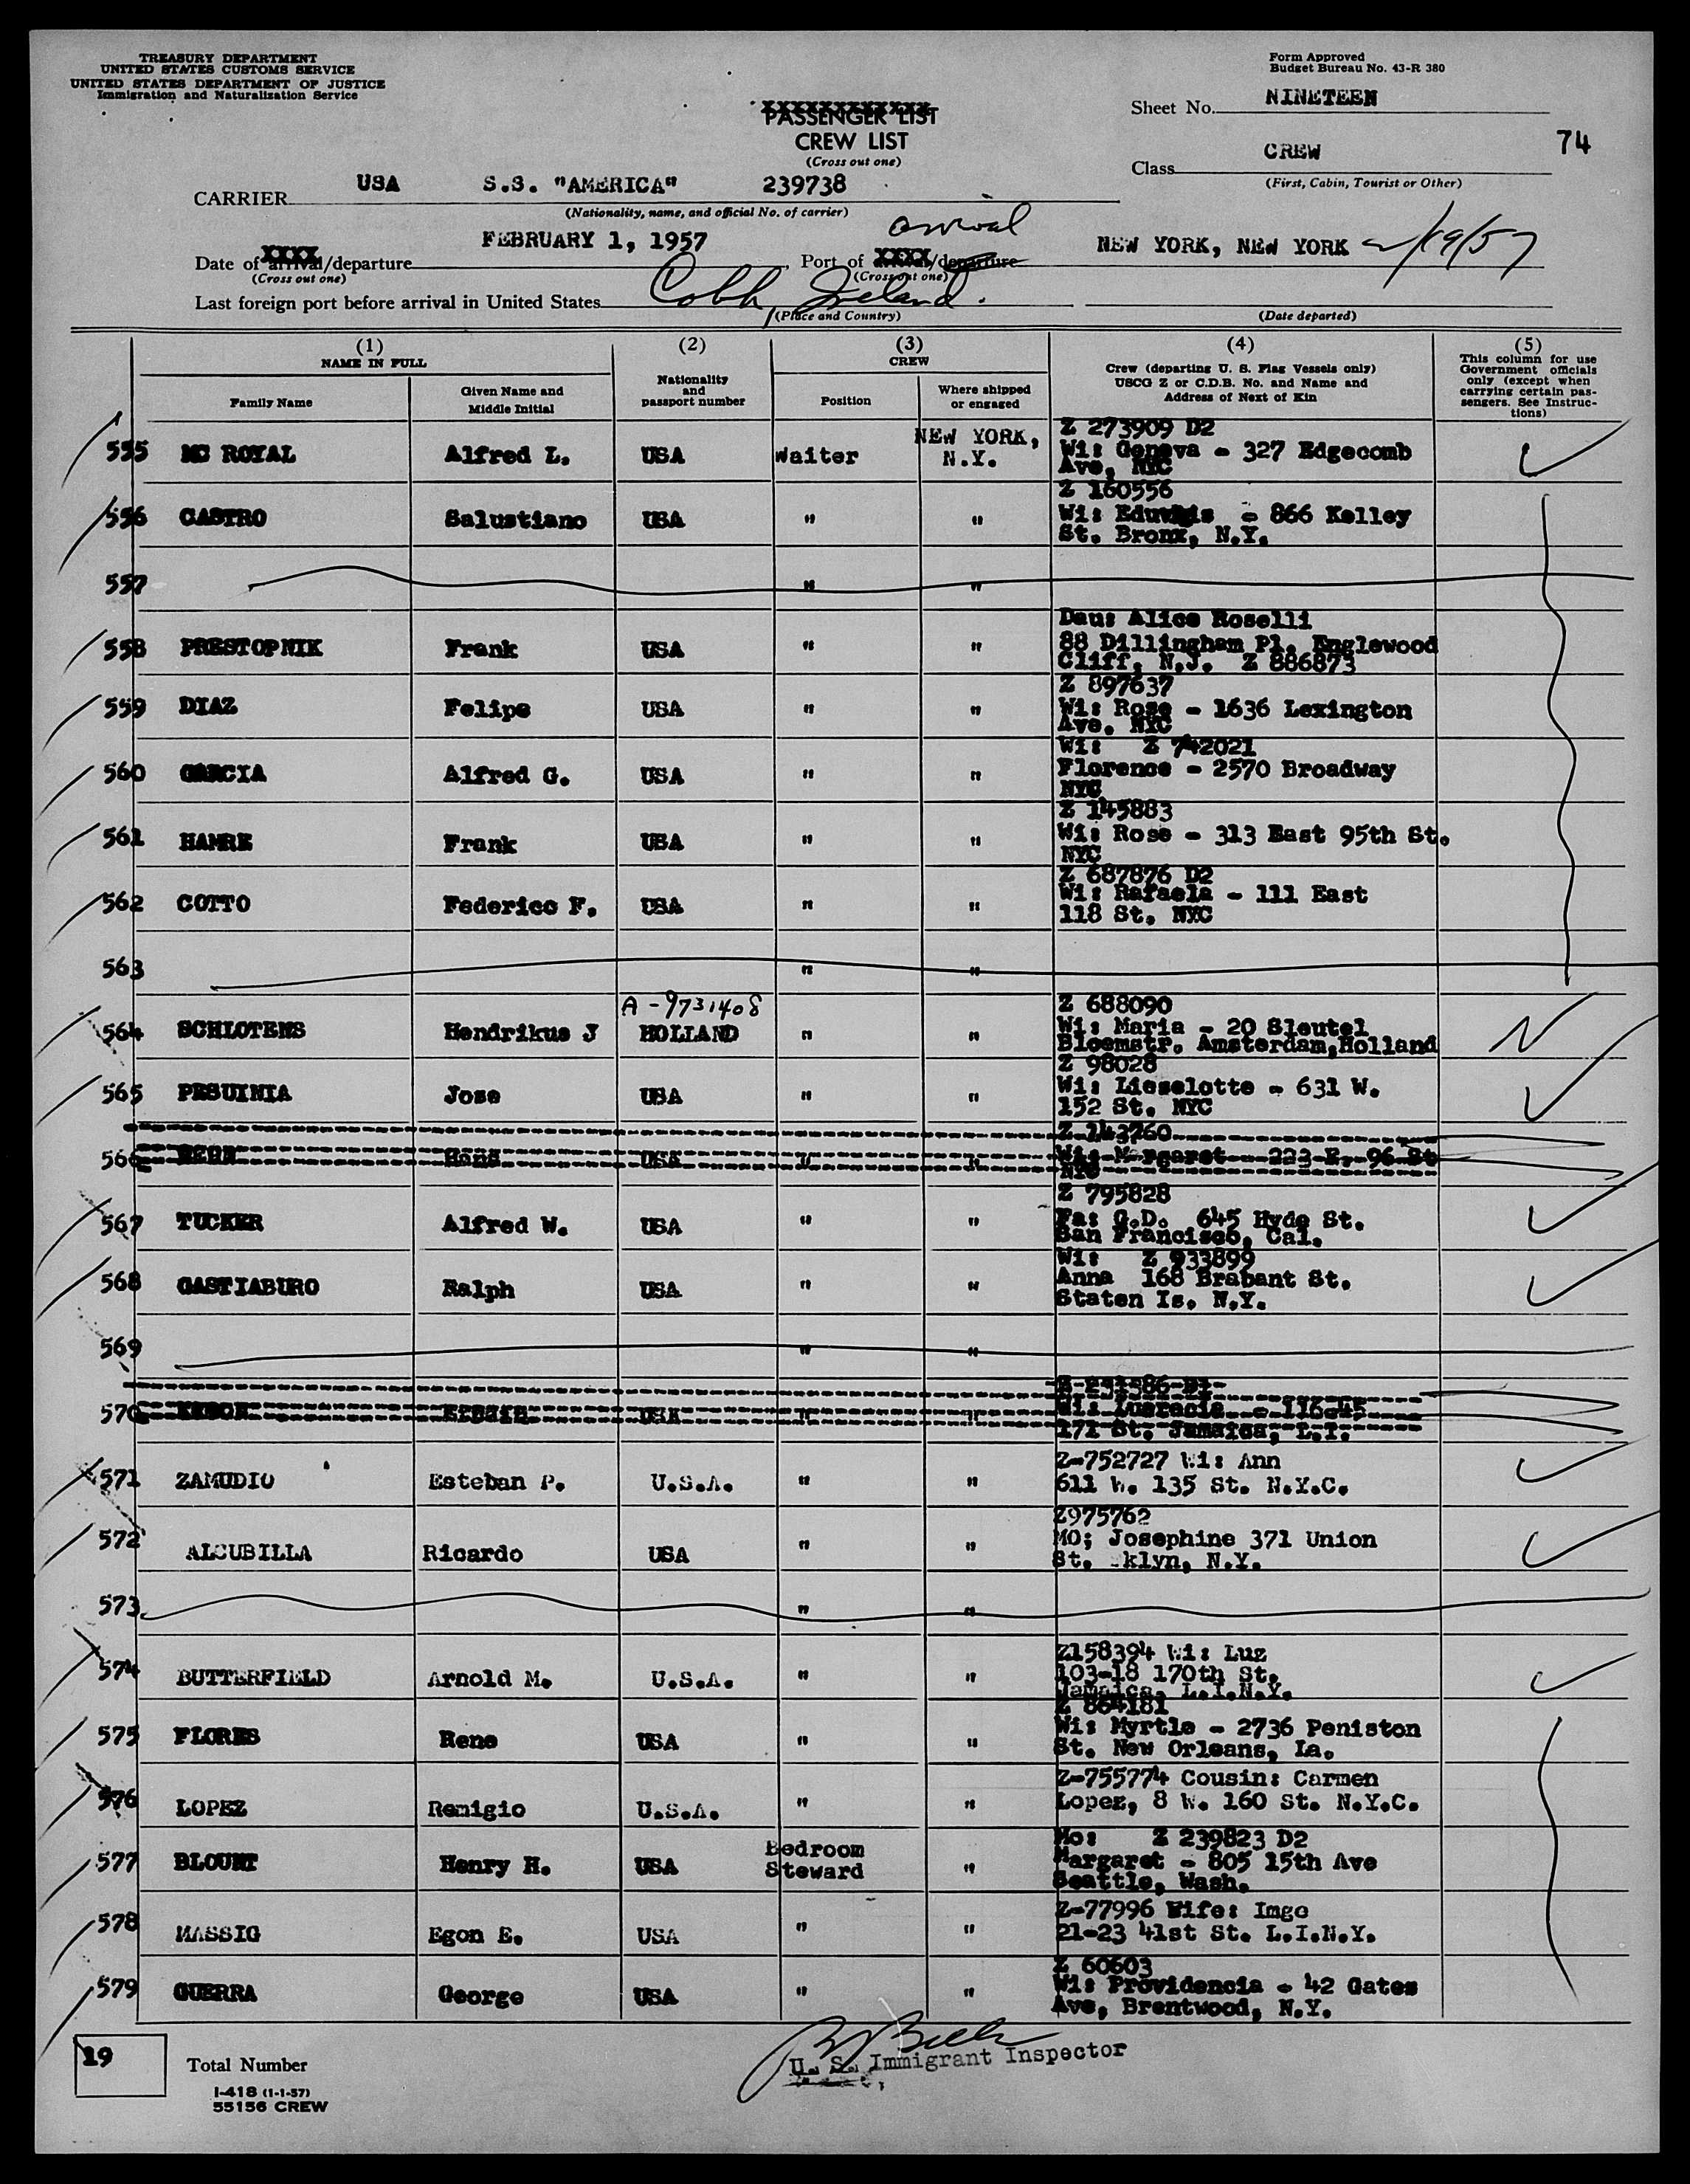 TREASURY DEPARTMENT
UNITED STATES CUSTOMS SERVICE
UNITED STATES DEPARTMENT OF JUSTICE
Immigration and Naturalization Service
Form Approved
Budget Bureau No. 43-R 380
PASSENGER LIST
CREW LIST
(Cross out one)
Sheet No. NINETEEN
74
Class CREW
(First, Cabin, Tourist or Other)
CARRIER USA S.S. "AMERICA" 239738
(Nationality, name, and official No. of carrier)
arrival
Date of arrival/departure FEBRUARY 1, 1957, Port of XXXX/departure NEW YORK, NEW YORK 2/19/57
(Cross out one) (Cross out one)
Last foreign port before arrival in United States Cobh, Ireland.
(Place and Country) (Date departed)
(1) (2) (3) (4) (5)
NAME IN FULL
Family Name
Given Name and Middle Initial
Nationality and passport number
CREW
Position
Where shipped or engaged
Crew (departing U. S. Flag Vessels only)
USCG Z or C.D.B. No. and Name and
Address of Next of Kin
This column for use
Government officials
only (except when
carrying certain pas-
sengers. See Instruc-
tions)
555 MC ROYAL Alfred L. USA Waiter NEW YORK, N.Y. Z 273909 D2
Wi: Geneva - 327 Edgecomb
Ave, NYC
556 CASTRO Salustiano USA " " Z 160556
Wi: Eduvigis - 866 Kelley
St. Bronx, N.Y.
557 " "
558 PRESTOPNIK Frank USA " " Dau: Alice Roselli
88 Dillingham Pl. Englewood
Cliff, N.J. Z 886873
559 DIAZ Felipe USA " " Z 897637
Wi: Rose - 1636 Lexington
Ave. NYC
560 GARCIA Alfred G. USA " " Wi: Z 742021
Florence - 2570 Broadway
NYC
561 HAMRE Frank USA " " Z 145883
Wi: Rose - 313 East 95th St.
NYC
562 COTTO Federico F. USA " " Z 687876 D2
Wi: Rafaela - 111 East
118 St. NYC
563 " "
A-9731408
564 SCHLOTENS Hendrikus J HOLLAND " " Z 688090
Wi: Maria - 20 Sleutel
Bloemstr. Amsterdam, Holland
565 PESUINIA Jose USA " " Z 98028
Wi: Lieselotte - 631 W.
152 St. NYC
566 Hans USA " " Z 143760
Wi: Margaret - 223 E. 96 St
NYC
567 TUCKER Alfred W. USA " " Z 795828
Fa: G.D. 645 Hyde St.
San Francisco, Cal.
568 GASTIABURO Ralph USA " " Wi: Z 933899
Anna 168 Brabant St.
Staten Is. N.Y.
569 " "
570 USA " "
Wi: Lucrecia - 116-45
171 St. Jamaica, L.I.
571 ZAMUDIO Esteban P. U.S.A. " " Z-752727 Wi: Ann
611 W. 135 St. N.Y.C.
572 ALCUBILLA Ricardo USA " " Z975762
MO; Josephine 371 Union
St. klyn, N.Y.
573 " "
574 BUTTERFIELD Arnold M. U.S.A. " " Z158394 Wi: Luz
103-18 170th St.
Jamaica, L.I.N.Y.
575 FLORES Rene USA " " Z 864181
Wi: Myrtle - 2736 Peniston
St. New Orleans, La.
576 LOPEZ Remigio U.S.A. " " Z-755774 Cousin: Carmen
Lopez, 8 W. 160 St. N.Y.C.
577 BLOUNT Henry H. USA Bedroom Steward " Mo: Z 239823 D2
Margaret - 805 15th Ave
Seattle, Wash.
578 MASSIG Egon E. USA " " Z-77996 Wife: Imgo
21-23 41st St. L.I.N.Y.
579 GUERRA George USA " " Z 60603
Wi: Providencia - 42 Gates
Ave, Brentwood, N.Y.
19 Total Number
U. S. Immigrant Inspector
I-418 (1-1-57)
55156 CREW